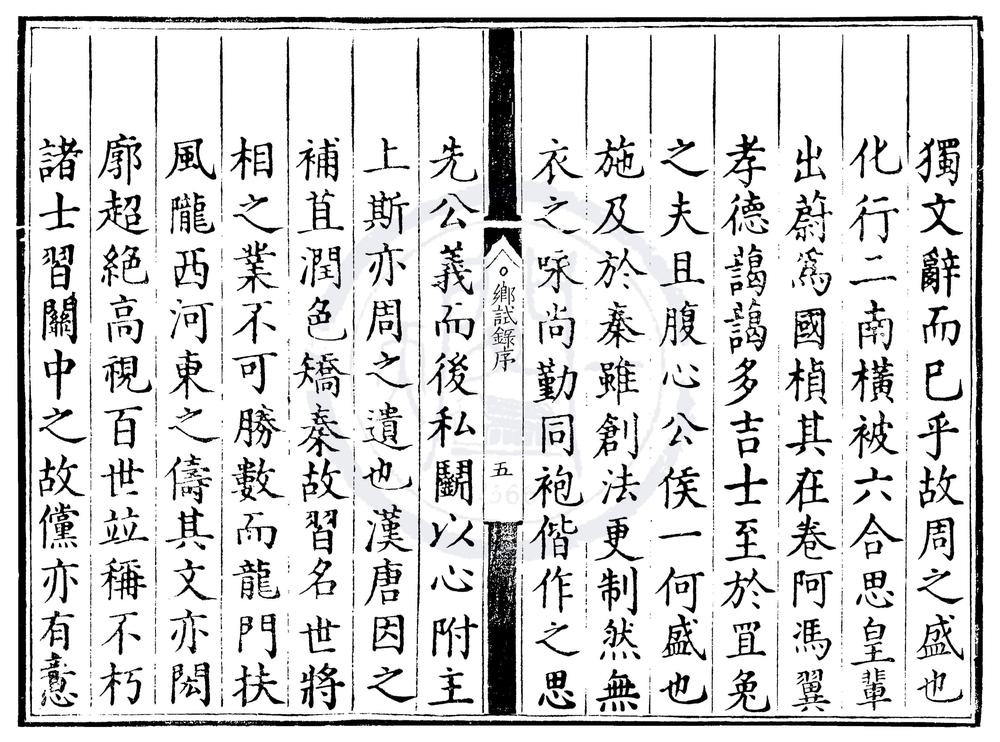 獨文辭而巳乎故周之盛也
化行二南橫被六合思皇輩
出蔚爲國楨其在卷阿馮翼
孝德藹藹多吉士至於罝兔
之夫且腹心公侯一何盛也
施及於秦雖創法更制然無
衣之咏尚勤同袍偕作之思
鄉試錄序
五
先公義而後私鬭以心附主
上斯亦周之遺也漢唐因之
補苴潤色矯秦故習名世將
相之業不可勝數而龍門扶
風隴西河東之儔其文亦閎
廓超絕高視百世竝稱不朽
諸士習關中之故儻亦有意